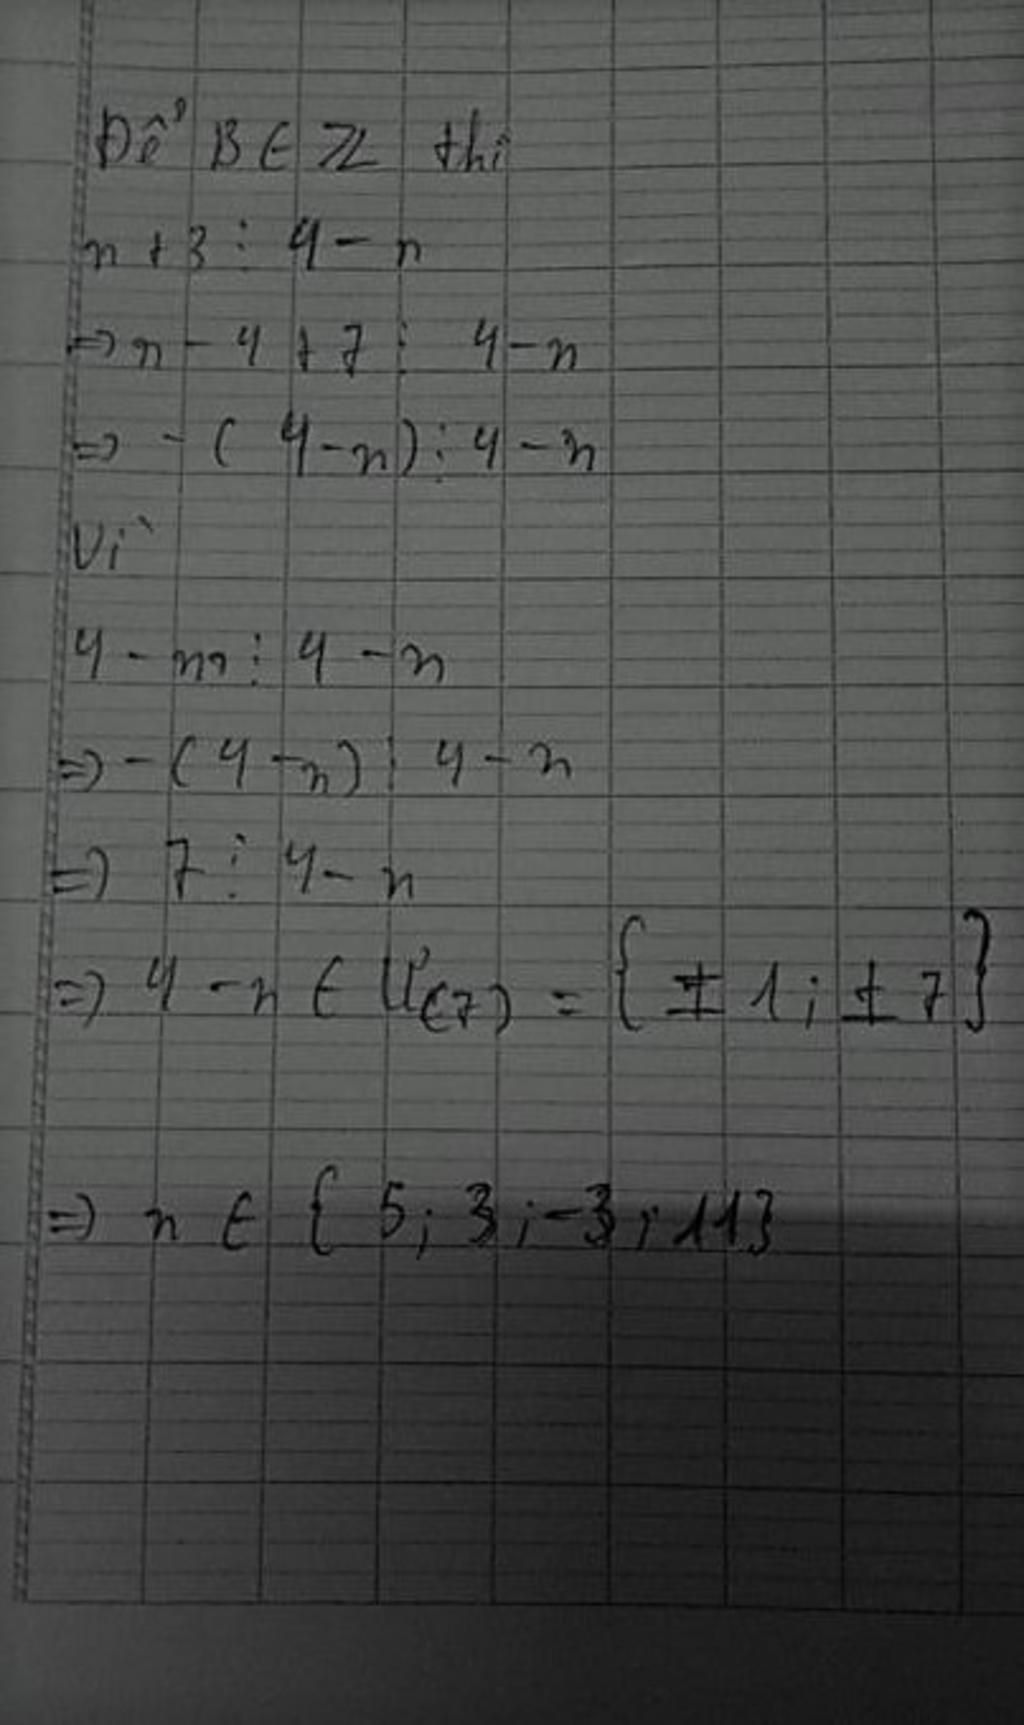 Để B ∈ ℤ thì
n + 3 ⋮ 4 - n
=> n - 4 + 7 ⋮ 4 - n
=> - ( 4 - n ) ⋮ 4 - n
Vì
4 - n ⋮ 4 - n
=> - ( 4 - n ) ⋮ 4 - n
=> 7 ⋮ 4 - n
=> 4 - n ∈ Ư(7) = { ± 1 ; ± 7 }
=> n ∈ { 5 ; 3 ; -3 ; 11 }